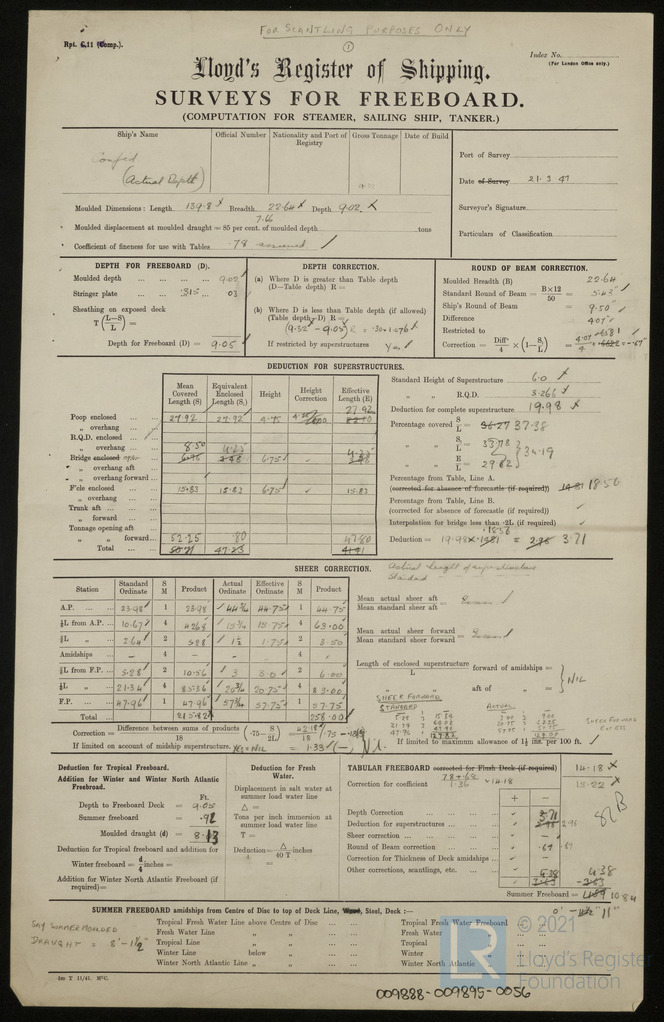 FOR SCANTLING PURPOSES ONLY
1
Rpt. C.11 (Comp.).
Index No.
(For London Office only.)
Lloyd's Register of Shipping.
SURVEYS FOR FREEBOARD.
(COMPUTATION FOR STEAMER, SAILING SHIP, TANKER.)
Ship's Name
Official Number
Nationality and Port of Registry
Gross Tonnage
Date of Build
(Actual Depth)
Port of Survey
Date of Survey 21.3.47
Surveyor's Signature
Particulars of Classification
Moulded Dimensions: Length 139.8 Breadth 22.64 Depth 9.02
7.66
Moulded displacement at moulded draught = 85 per cent. of moulded depth tons
Coefficient of fineness for use with Tables .78 assumed
DEPTH FOR FREEBOARD (D).
Moulded depth 9.02
Stringer plate .315 03
Sheathing on exposed deck
T (L–S / L) =
Depth for Freeboard (D) = 9.05
DEPTH CORRECTION.
(a) Where D is greater than Table depth
(D—Table depth) R =
(b) Where D is less than Table depth (if allowed)
(Table depth—D) R =
(9.32 - 9.05)
If restricted by superstructures Yes
ROUND OF BEAM CORRECTION.
Moulded Breadth (B) 22.64
Standard Round of Beam = B × 12 / 50 = 5.43"
Ship's Round of Beam = 9.50"
Difference 4.07"
Restricted to
Correction = Diff / 4 × (1 – S₁ / L) = 4.07 / 4
DEDUCTION FOR SUPERSTRUCTURES.
Mean Covered Length (S)
Equivalent Enclosed Length (S₁)
Height
Height Correction
Effective Length (E)
Poop enclosed 27.92 27.92 4.75 27.92
„ overhang
R.Q.D. enclosed
„ overhang 8.50 4.25 4.25
Bridge enclosed 6.75
„ overhang aft
„ overhang forward
F'cle enclosed 15.83 15.83 6.75 15.83
„ overhang
Trunk aft
„ forward
Tonnage opening aft
„ „ forward 52.25 .80 47.80
Total 50.21 47.23
Standard Height of Superstructure 6.0
„ „ R.Q.D. 3.266
Deduction for complete superstructure 19.98
Percentage covered S / L = 36.27 37.38
„ „ S₁ / L = 33.78
„ „ E / L = 29.82
34.19
Percentage from Table, Line A.
(corrected for absence of forecastle (if required)) 18.56
Percentage from Table, Line B.
(corrected for absence of forecastle (if required))
Interpolation for bridge less than ·2L (if required)
18.56
Deduction = 19.98 × = 3.71
SHEER CORRECTION.
Actual length of superstructure
Station
Standard Ordinate
S M
Product
Actual Ordinate
Effective Ordinate
S M
Product
A.P. 23.98 1 23.98 44.75 1 44.75
⅙L from A.P. 10.67 4 42.68 15.75 4 63.00
⅓L „ 2.64 2 5.28 1½ 1.75 2 3.50
Amidships – 4 – 4
⅓L from F.P. 5.28 2 10.56 3 3.0 2 6.00
⅙L „ 21.34 4 85.36 20¾ 20.75 4 83.00
F.P. 47.96 1 47.96 57¾ 57.75 1 57.75
Total 215.82 258.00
Mean actual sheer aft / Mean standard sheer aft =
Mean actual sheer forward / Mean standard sheer forward =
Length of enclosed superstructure / L forward of amidships =
„ „ aft of „ =
NIL
SHEER FORWARD
STANDARD
ACTUAL
SHEER FORWARD EXCESS
Correction = Difference between sums of products / 18 (·75 – S / 2L) = 42.18 / 18
If limited on account of midship superstructure. Yes = NIL = 1.33 (–) Nil.
If limited to maximum allowance of 1½ ins. per 100 ft.
Deduction for Tropical Freeboard.
Addition for Winter and Winter North Atlantic Freeboard.
Ft.
Depth to Freeboard Deck = 9.05
Summer freeboard = .92
Moulded draught (d) = 8.13
Deduction for Tropical freeboard and addition for Winter freeboard = d / 4 inches =
Addition for Winter North Atlantic Freeboard (if required) =
Deduction for Fresh Water.
Displacement in salt water at summer load water line
Δ =
Tons per inch immersion at summer load water line
T =
Deduction = Δ / 40 T inches
=
TABULAR FREEBOARD corrected for Flush Deck (if required) 14.18
Correction for coefficient .78 + .68 / 1.36 × 14.18 15.22
+ –
Depth Correction 3.71
Deduction for superstructures 2.96
Sheer correction
Round of Beam correction .67
Correction for Thickness of Deck amidships
Other corrections, scantlings, etc.
4.38
4.38
Summer Freeboard = 10.84
82B
SUMMER FREEBOARD amidships from Centre of Disc to top of Deck Line, Wood, Steel, Deck :— 0' – 11"
SAY SUMMER MOULDED
DRAUGHT = 8'-1½"
Tropical Fresh Water Line above Centre of Disc
Fresh Water Line „ „
Tropical Line „ „
Winter Line below „
Winter North Atlantic Line „ „
Tropical Fresh Water Freeboard
Fresh Water „
Tropical „
Winter „
Winter North Atlantic „
2m T 11/41. MᶜC.
LR
© 2021
Lloyd's Register
Foundation
009888-009895-0056